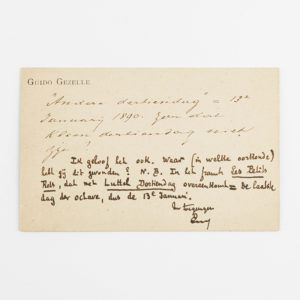 GUIDO GEZELLE.
"Andere dertiendag" = 19e
January 1890. Zoen dat
Kleen dertiendag niet
Ik geloof het ook. Waar (in welke oorkonde)
hebt gij dit gevonden? N.B. In het fransch les Petits
Rois, dat met Luttel Dertiendag overeenkomt = de laatste
dag der octave, dus de 13e Januari.